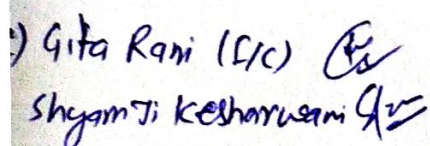 :) Gita Rani (I/C)
Shyam Ji Kesharwani